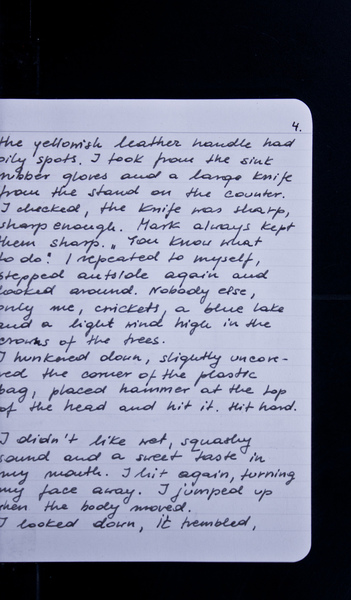 4.
the yellowish leather handle had
oily spots. I took from the sink
rubber gloves and a large knife
from the stand on the counter.
I checked, the knife was sharp,
sharp enough. Mark always kept
them sharp. „You know what
to do." I repeated to myself,
stepped outside again and
looked around. Nobody else,
only me, crickets, a blue lake
and a light wind high in the
crowns of the trees.
I hunkered down, slightly uncove-
red the corner of the plastic
bag, placed hammer at the top
of the head and hit it. Hit hard.
I didn't like wet, squashy
sound and a sweet taste in
my mouth. I hit again, turning
my face away. I jumped up
when the body moved.
I looked down, it trembled,